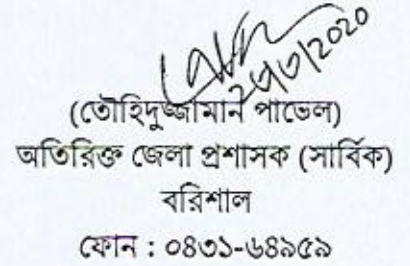 (তৌহিদুজ্জামান পাভেল)
অতিরিক্ত জেলা প্রশাসক (সার্বিক)
বরিশাল
ফোন : ০৪৩১-৬৪৯৫৯